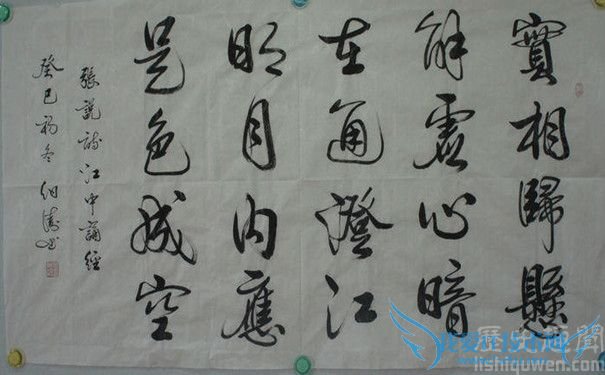 實相歸懸
解虛心暗
在通澄江
明月內應
是色成空
張說詩江中誦經
癸巳初冬
歷史趣聞
lishiquwen.com